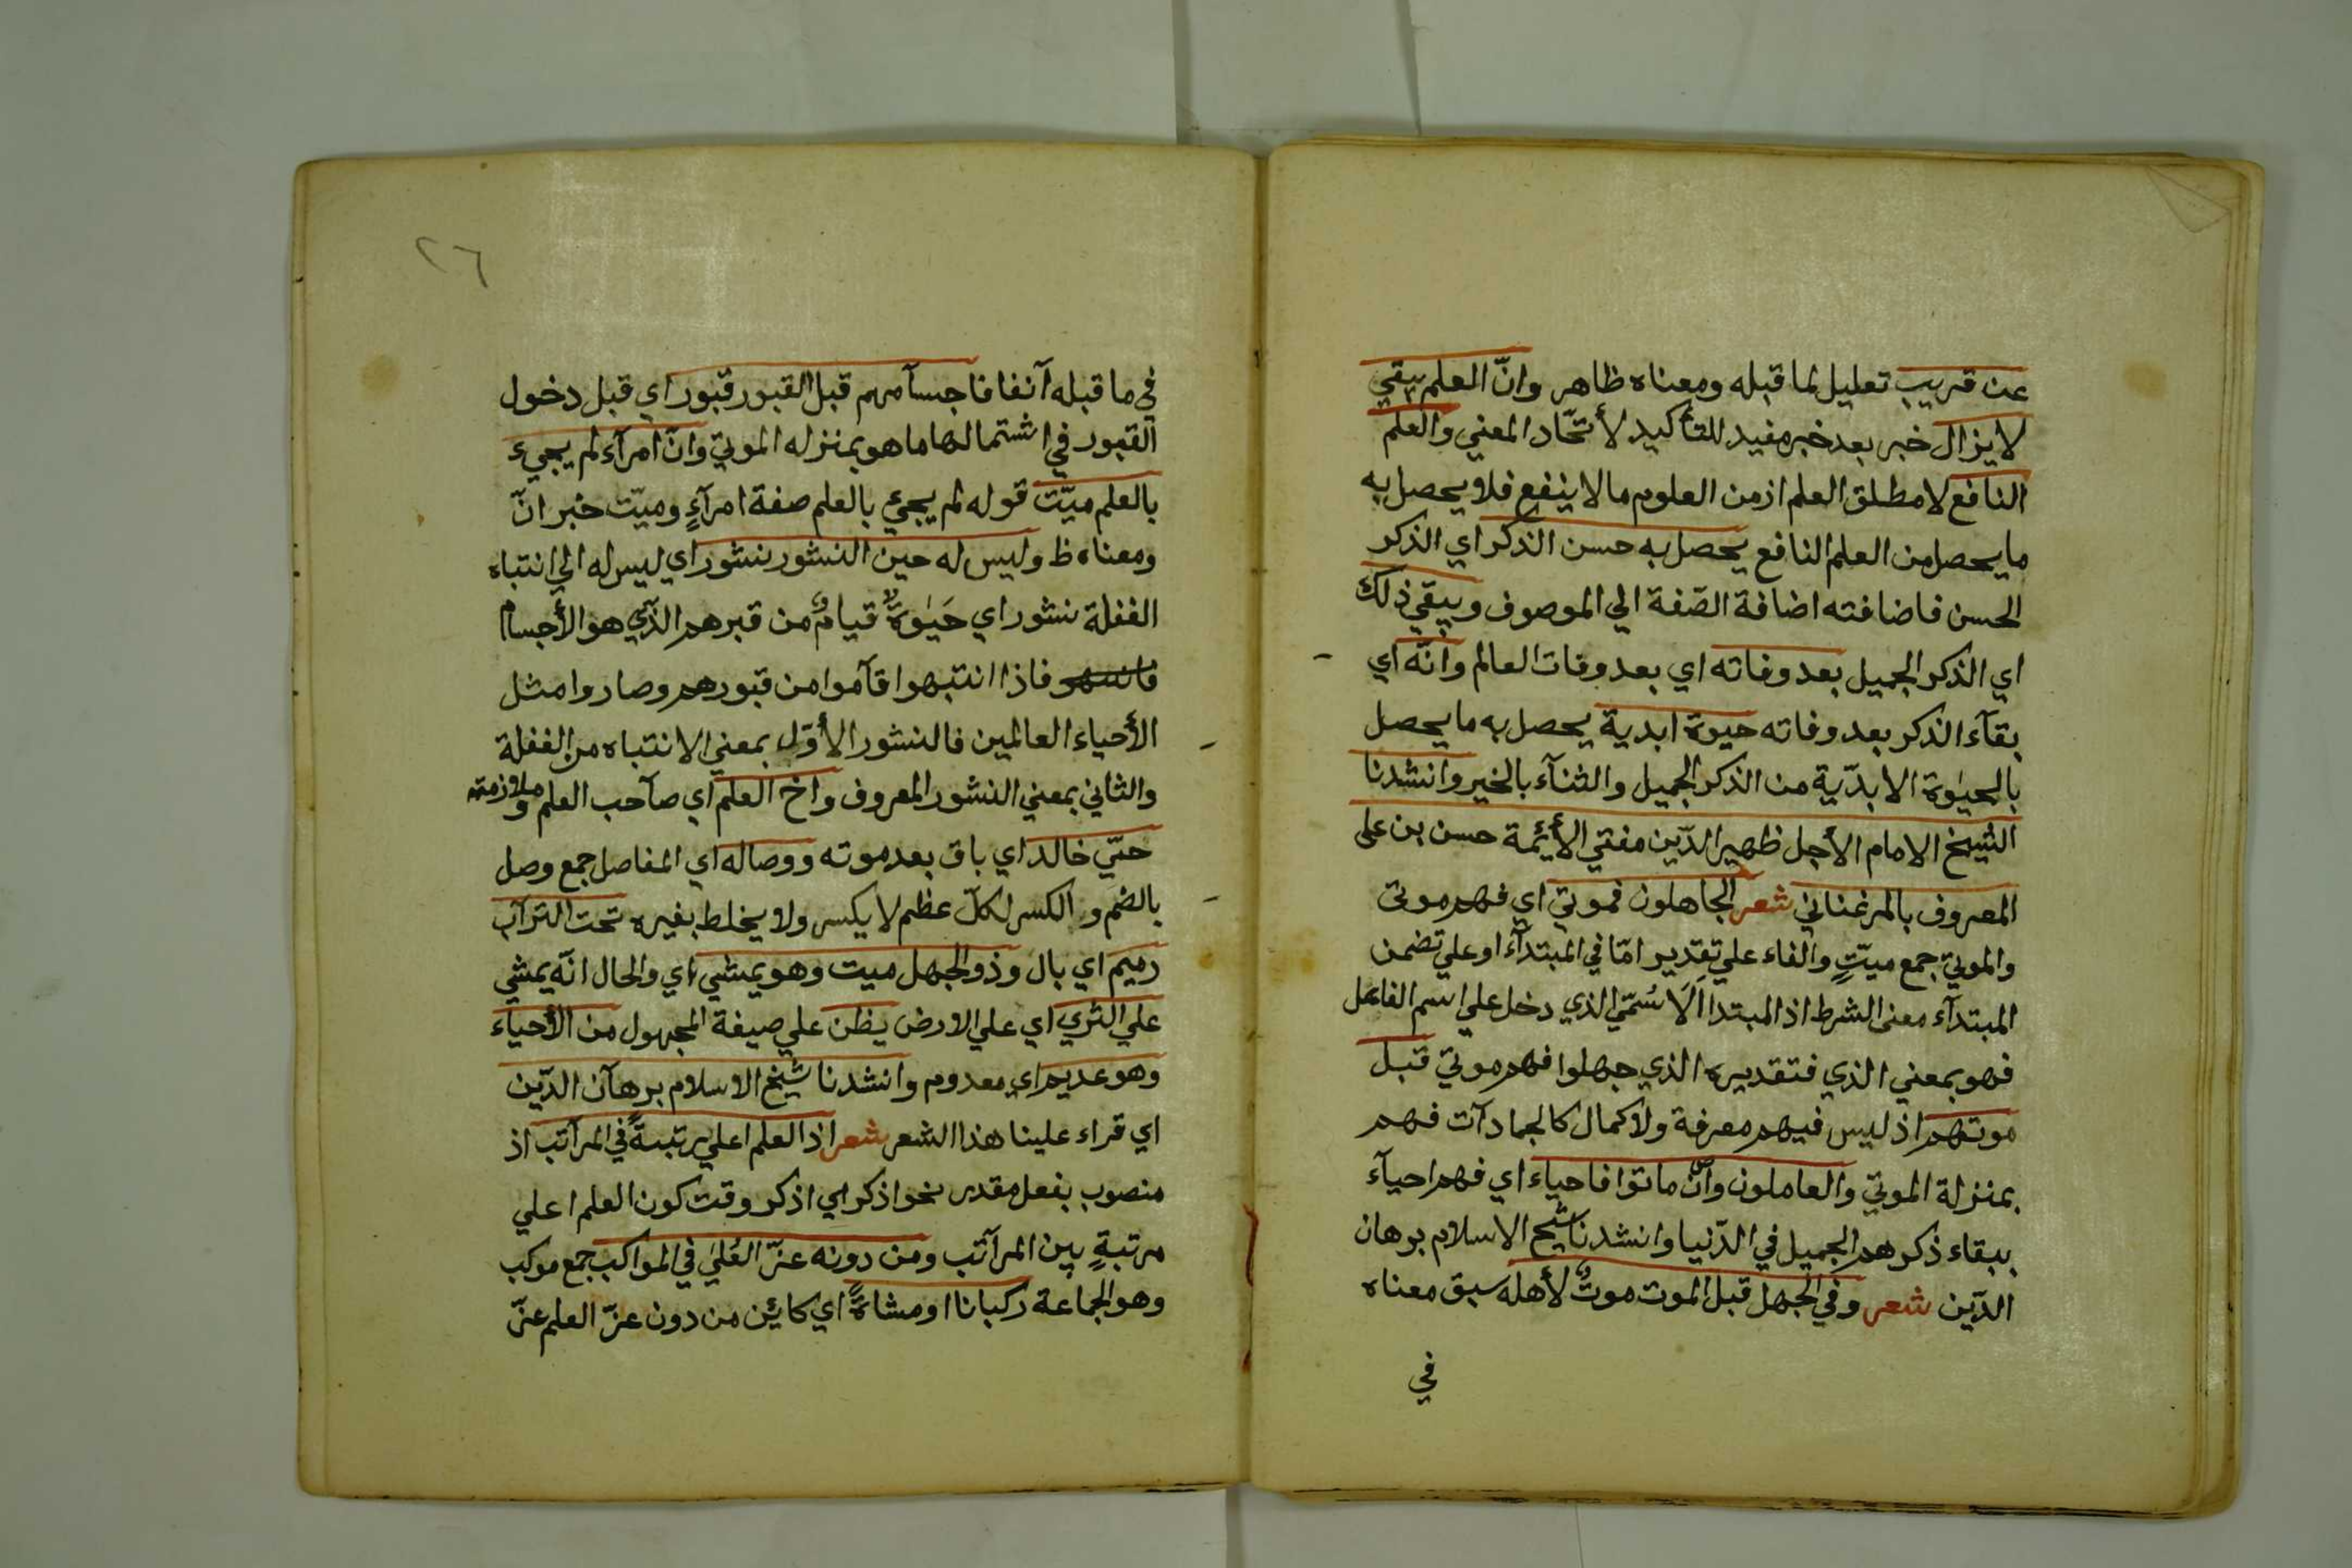 عن قريب تعليل لما قبله ومعناه ظاهر وانّ العلم يبقي
لا يزال خبر بعد خبر مفيد للتأكيد لأتحّاد المعني والعلم
النافع لا مطلق العلم اذ من العلوم مالا ينفع فلا يحصل به
ما يحصل من العلم النافع يحصل به حسن الذكر اي الذكر
الحسن فاضافته اضافة الصّفة الي الموصوف ويبقي ذلك
اي الذكر الجميل بعد وفاته اي بعد وفات العالم وانّه اي
بقآء الذكر بعد وفاته حيوة ابدية يحصل به ما يحصل
بالحيوة الابدّية من الذكر الجميل والثنآء بالخير وانشدنا
الشيخ الامام الأجل ظهير الدّين مفتي الأئمة حسن بن على
المعروف بالمرغناني شعر الجاهلون فموتي اي فهم موتى
والموتي جمع ميّتٍ والفاء علي تقدير امّا في المبتدآء او علي تضمن
المبتدآء معنى الشرط اذ المبتدا الَاسُمّي الذي دخل علي اسم الفاعل
فهو بمعني الذي فتقديره الذي جهلوا فهم موتي قبل
موتهم اذ ليس فيهم معرفة ولا كمال كالجمادآت فهم
بمنزلة الموتي والعاملون وانّ ماتوا فاحياء اي فهم احيآء
ببقاء ذكرهم الجميل في الدّنيا وانشدنا شيخ الاسلام برهان
الدّين شعر وفي الجهل قبل الموت موتٌ لأهله سبق معناه
في
٢٦
في ما قبله آنفا فاجسآمهم قبل القبور قبور اي قبل دخول
القبور في اشتمالها ما هو بمنزله الموتي وانّ امرآء لم يجيء
بالعلم ميّت قوله لم يجيء بالعلم صفة امرآءٍ وميّت خبر انّ
ومعناه ظ وليس له حين النشور نشور اي ليس له الي انتباه
الغفلة نشور اي حَيٰوةٌ قيامٌ من قبرهم الذّي هو الأجسام
فاذا انتبهوا قآموا من قبورهم وصاروا مثل
الأحياء العالمين فالنشور الأوّل بمعني الانتباه من الغفلة
والثاني بمعني النشور المعروف واخ العلم اي صآحب العلم وملازمته
حيّ خالد اي باق بعد موته ووصاله اي المفاصل جمع وصل
بالضم والكسر لكلّ عظم لا يكسر ولا يخلط بغيره تحت الترآب
رميم اي بال وذو الجهل ميت وهو يمشي اي والحال انّه يمشي
علي الثري اي علي الارض يظن علي صيغة المجهول من الأحياء
وهو عديم اي معدوم وانشدنا شيخ الاسلام برهآن الدّين
اي قراء علينا هذا الشعر شعر اذ العلم اعلي رتبةً في المرآتب اذ
منصوب بفعل مقدر نحو اذكر اي اذكر وقت كون العلم اعلي
مرتبةٍ بين المرآتب ومن دونه عزّ العُلي في المواكب جمع موكب
وهو الجماعة ركبانا او مشاةً اي كائن من دون عزّ العلم عزّ